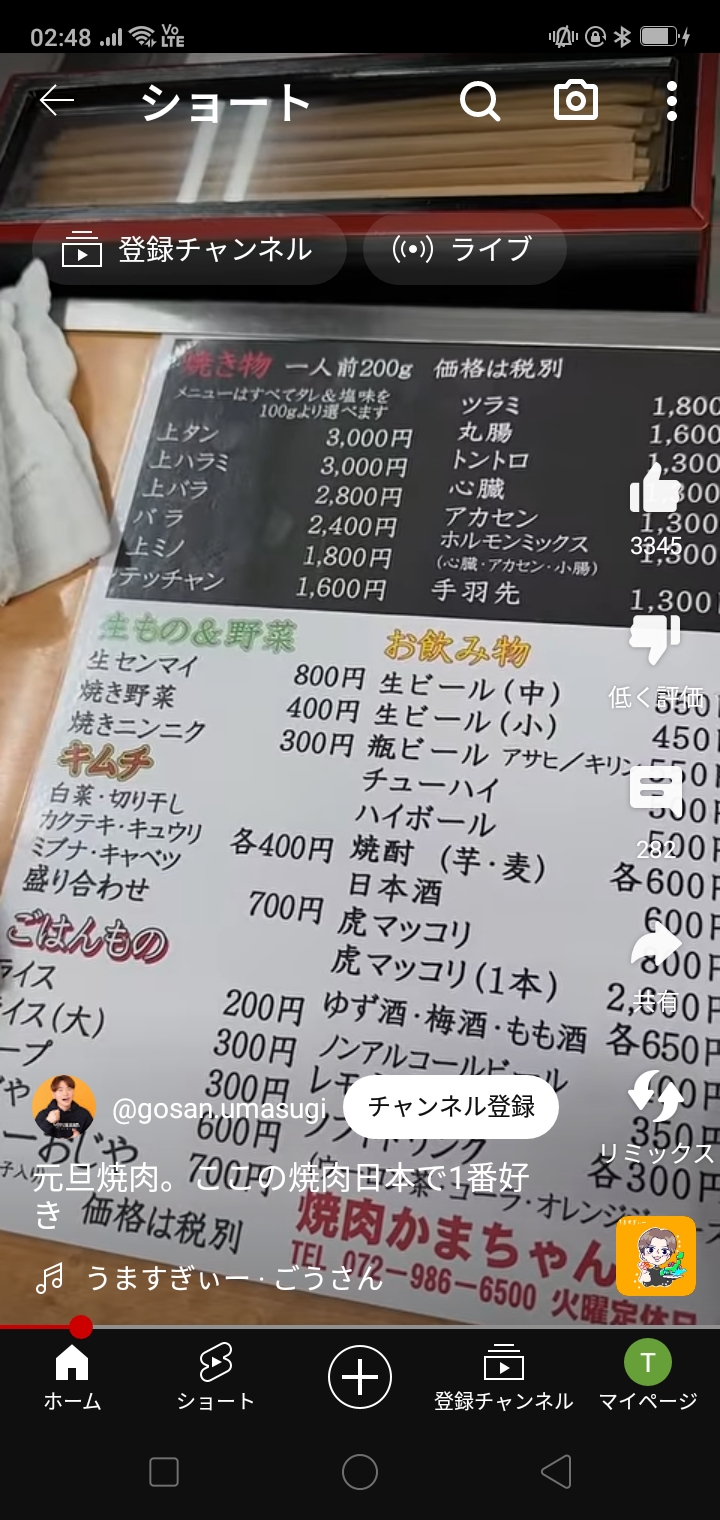 02:48 Vo LTE
ショート
登録チャンネル ライブ
焼き物 一人前200g 価格は税別
メニューはすべてタレ&塩味を
100gより選べます
上タン 3,000円
上ハラミ 3,000円
上バラ 2,800円
バラ 2,400円
上ミノ 1,800円
テッチャン 1,600円
ツラミ 1,800
丸腸 1,600
トントロ 1,300
心臓
アカセン 1,300
ホルモンミックス 1,300
(心臓・アカセン・小腸)
手羽先 1,300
生もの&野菜
生センマイ 800円
焼き野菜 400円
焼きニンニク 300円
キムチ
白菜・切り干し
カクテキ・キュウリ
ミブナ・キャベツ 各400円
盛り合わせ 700円
ごはんもの
ライス 200円
イス(大) 300円
ープ 300円
600円
ーおじや 700円
価格は税別
お飲み物
生ビール(中)
生ビール(小) 450円
瓶ビール アサヒ/キリン 550円
チューハイ 500円
ハイボール 500円
焼酎 (芋・麦) 各600円
日本酒 600円
虎マッコリ 800円
虎マッコリ(1本)
ゆず酒・梅酒・もも酒 各650円
ノンアルコールビール
350円
ソフトドリンク 各300円
コーラ・オレンジ
焼肉かまちゃん
TEL 072-986-6500 火曜定休日
3345
低く評価
282
共有
リミックス
@gosan.umasugi チャンネル登録
元旦焼肉。ここの焼肉日本で1番好
き
うますぎぃー・ごうさん
ホーム ショート 登録チャンネル T マイページ